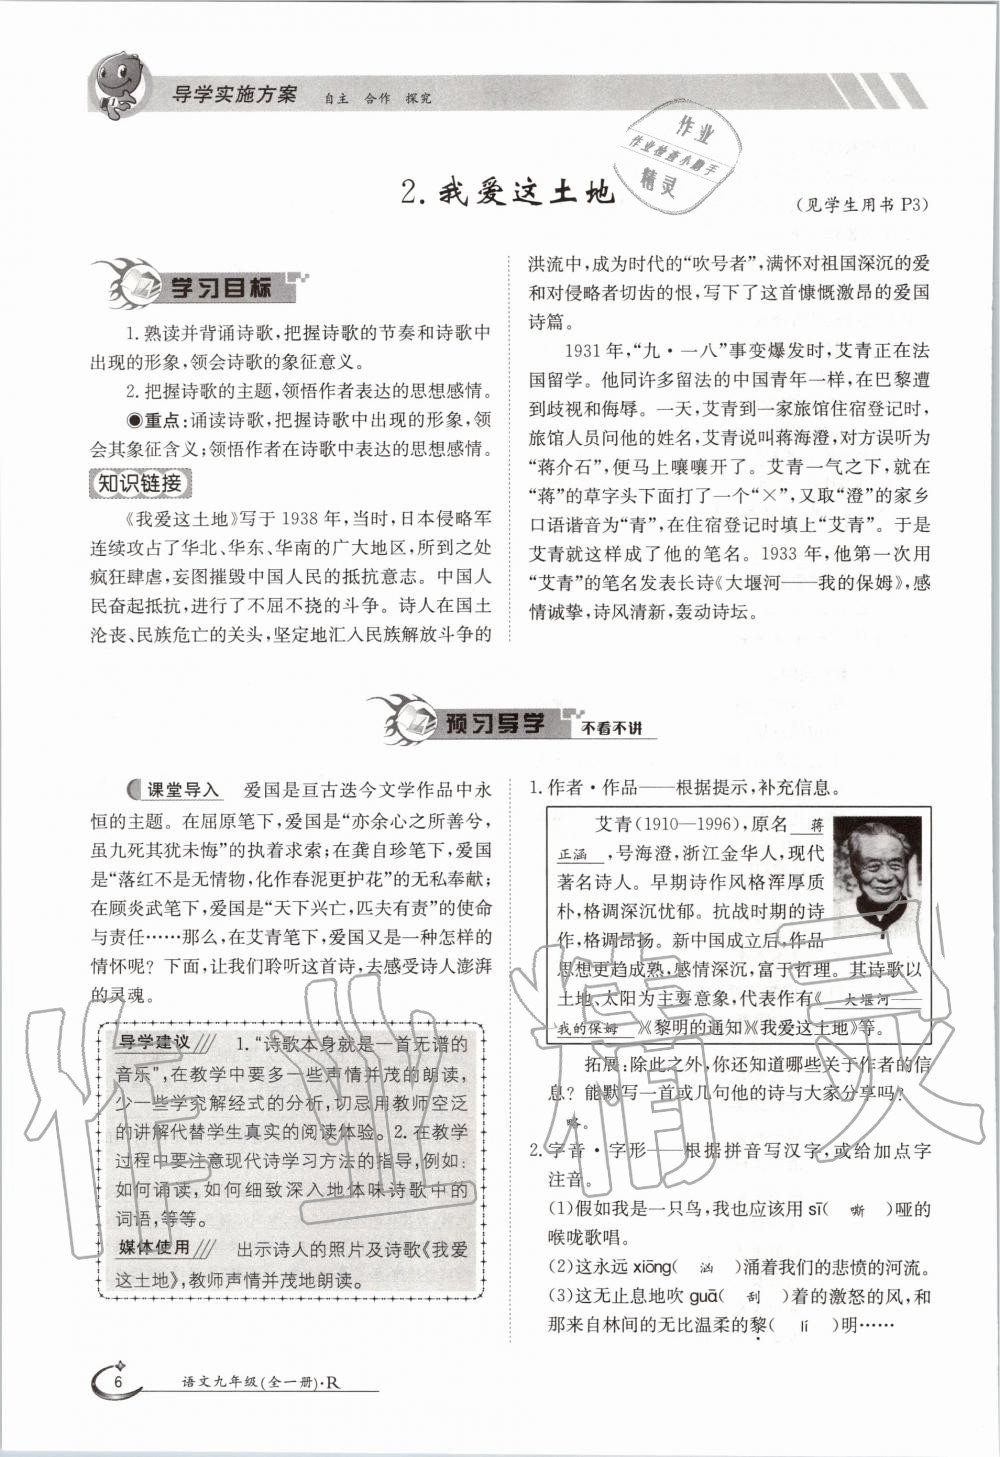 导学实施方案 自主 合作 探究
作业
作业检查小帮手
精灵
2.我爱这土地
(见学生用书 P3)
学习目标
1.熟读并背诵诗歌,把握诗歌的节奏和诗歌中
出现的形象,领会诗歌的象征意义。
2.把握诗歌的主题,领悟作者表达的思想感情。
◉重点:诵读诗歌,把握诗歌中出现的形象,领
会其象征含义;领悟作者在诗歌中表达的思想感情。
知识链接
《我爱这土地》写于 1938 年,当时,日本侵略军
连续攻占了华北、华东、华南的广大地区,所到之处
疯狂肆虐,妄图摧毁中国人民的抵抗意志。中国人
民奋起抵抗,进行了不屈不挠的斗争。诗人在国土
沦丧、民族危亡的关头,坚定地汇入民族解放斗争的
洪流中,成为时代的“吹号者”,满怀对祖国深沉的爱
和对侵略者切齿的恨,写下了这首慷慨激昂的爱国
诗篇。
1931 年,“九·一八”事变爆发时,艾青正在法
国留学。他同许多留法的中国青年一样,在巴黎遭
到歧视和侮辱。一天,艾青到一家旅馆住宿登记时,
旅馆人员问他的姓名,艾青说叫蒋海澄,对方误听为
“蒋介石”,便马上嚷嚷开了。艾青一气之下,就在
“蒋”的草字头下面打了一个“×”,又取“澄”的家乡
口语谐音为“青”,在住宿登记时填上“艾青”。于是
艾青就这样成了他的笔名。1933 年,他第一次用
“艾青”的笔名发表长诗《大堰河——我的保姆》,感
情诚挚,诗风清新,轰动诗坛。
预习导学 不看不讲
课堂导入 爱国是亘古迭今文学作品中永
恒的主题。在屈原笔下,爱国是“亦余心之所善兮,
虽九死其犹未悔”的执着求索;在龚自珍笔下,爱国
是“落红不是无情物,化作春泥更护花”的无私奉献;
在顾炎武笔下,爱国是“天下兴亡,匹夫有责”的使命
与责任……那么,在艾青笔下,爱国又是一种怎样的
情怀呢?下面,让我们聆听这首诗,去感受诗人澎湃
的灵魂。
导学建议 1.“诗歌本身就是一首无谱的
音乐”,在教学中要多一些声情并茂的朗读,
少一些学究解经式的分析,切忌用教师空泛
的讲解代替学生真实的阅读体验。2.在教学
过程中要注意现代诗学习方法的指导,例如:
如何诵读,如何细致深入地体味诗歌中的
词语,等等。
媒体使用 出示诗人的照片及诗歌《我爱
这土地》,教师声情并茂地朗读。
1.作者·作品——根据提示,补充信息。
艾青(1910—1996),原名 蒋
正涵 ,号海澄,浙江金华人,现代
著名诗人。早期诗作风格浑厚质
朴,格调深沉忧郁。抗战时期的诗
作,格调昂扬。新中国成立后,作品
思想更趋成熟,感情深沉,富于哲理。其诗歌以
土地、太阳为主要意象,代表作有《 大堰河——
我的保姆 》《黎明的通知》《我爱这土地》等。
拓展:除此之外,你还知道哪些关于作者的信
息?能默写一首或几句他的诗与大家分享吗?
略。
2.字音·字形——根据拼音写汉字,或给加点字
注音。
(1)假如我是一只鸟,我也应该用 sī( 嘶 )哑的
喉咙歌唱。
(2)这永远 xiōng( 汹 )涌着我们的悲愤的河流。
(3)这无止息地吹 guā( 刮 )着的激怒的风,和
那来自林间的无比温柔的黎( lí )明……
6 语文九年级(全一册)·R
作业精灵